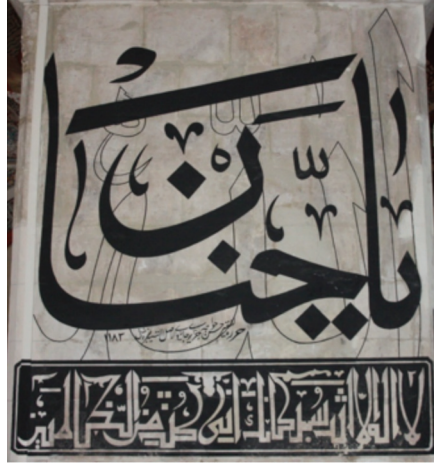 يا حنان
لا اله الا انت سبحانك اني كنت من الظالمين